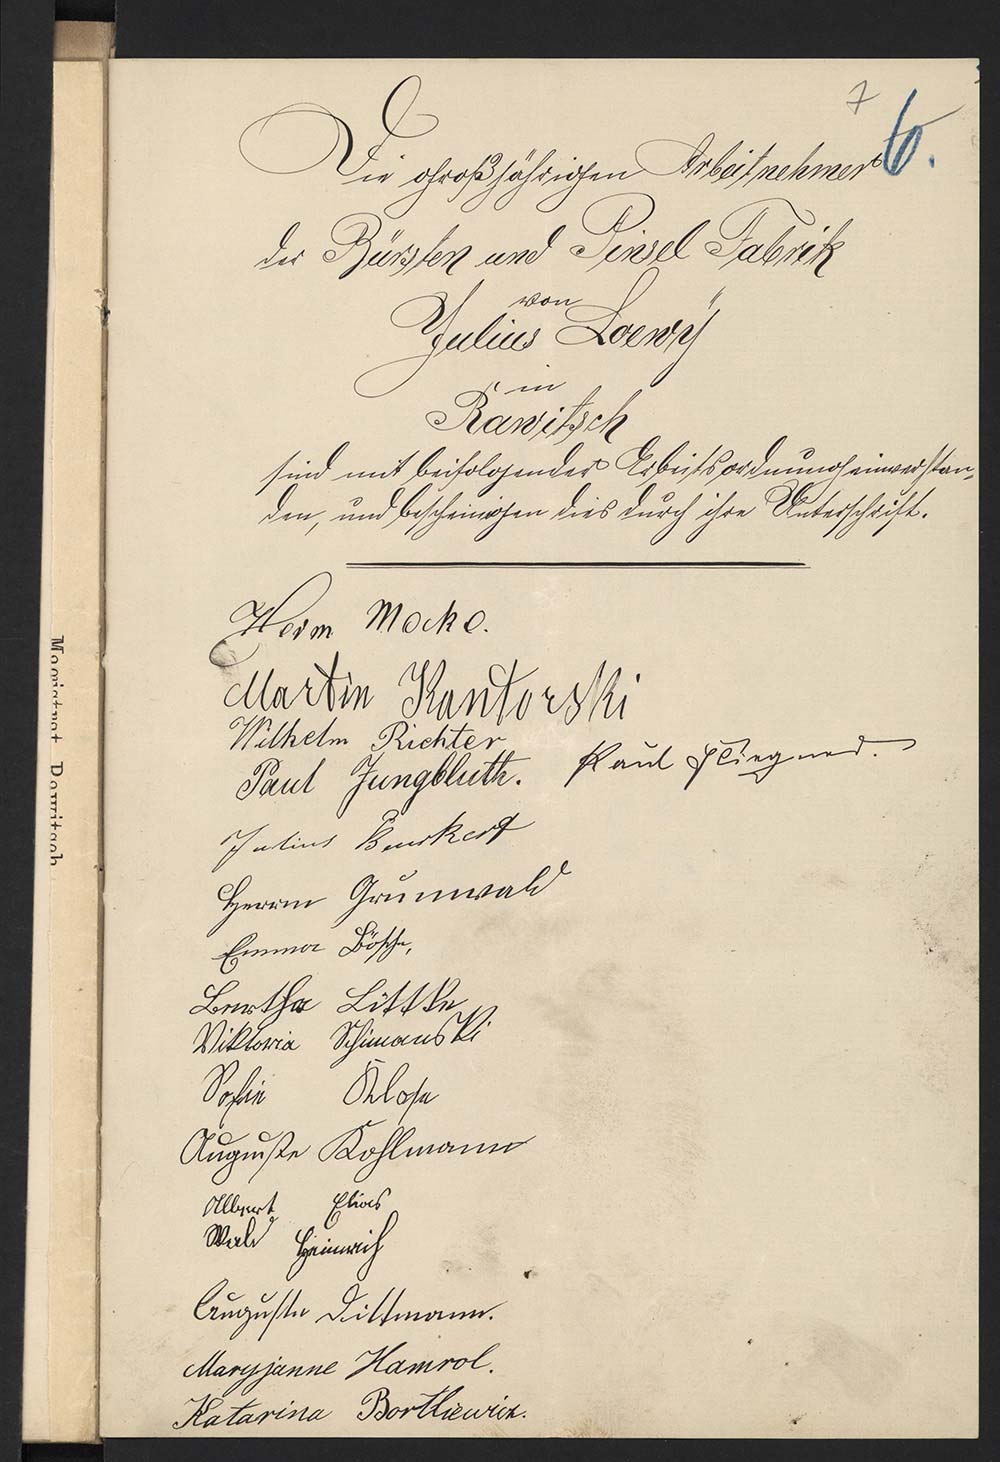 7
6.
Die großjährigen Arbeitnehmer
der Bürsten und Pinsel Fabrik
von
Julius Loewÿ
in
Rawitsch
sind mit beifolgender Arbeitsordnung einverstan-
den, und bescheinigen dies durch ihre Unterschrift.
Herm Mocke.
Martin Kantorski
Wilhelm Richter
Paul Jungbluth. Paul Fliegner.
Julius Beuskert
Herrm Grunwald
Emma Bösche,
Bertha Littke
Viktoria Schimanski
Sofie Klose
Auguste Kohlmann
Albert Elias
Wald Heinrich
Auguste Dittmann.
Maryjanne Hamrol.
Katarina Bortkiewicz.
Magistrat Rawitsch